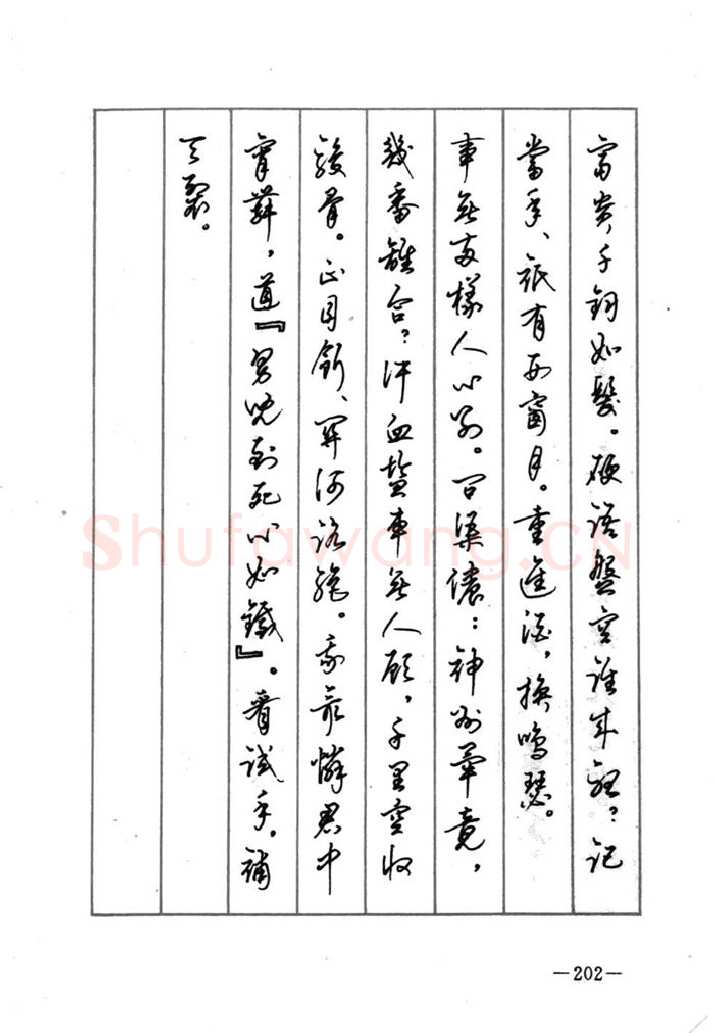 富貴千鈞如髮。硬語盤空誰來聽？記
當年、祇有西窗月。重進酒，換鳴瑟。
事無兩樣人心別。問渠儂：神州畢竟，
幾番離合？汗血鹽車無人顧，千里空收
駿骨。正目斷、關河路絕。我最憐君中
宵舞，道『男兒到死心如鐵』。看試手，補
天裂。
Shufawang.CN
—202—